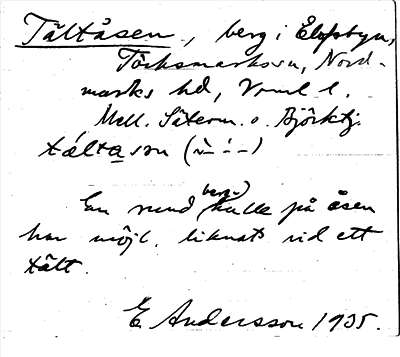 Tältåsen, berg i Elofsbyn,
Töcksmarks sn, Nord-
marks hd, Vrml l.
Mell. Säterm. o. Björktj.
tálta̱sen (ˋ– ˊ –)
En rund berg-kulle på åsen
har möjl. liknats vid ett
tält.
E. Andersson 1935.